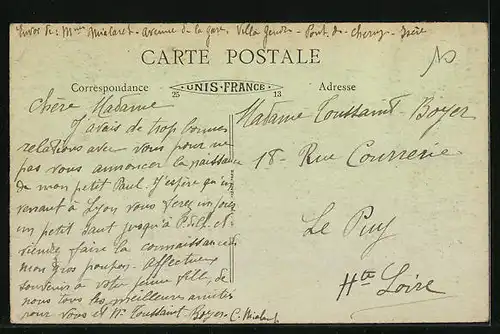 Envoi de: Mme Mialaret - Avenue de la gare - Villa - Pont de Cheruy - Isère
CARTE POSTALE
Correspondance 25 UNIS-FRANCE 13 Adresse
Chère Madame
J'avais de trop bonnes
relations avec vous pour ne
pas vous annoncer la naissance
de mon petit Paul. J'espère qu'en
venant à Lyon vous ferez un jour
un petit saut jusqu'à P. de C. et
viendrez faire la connaissance de
mon gros poupon. Affectueux
souvenirs à votre jeune fille, de
nous tous les meilleures amitiés
pour vous et Mr Toussaint-Boyer - C. Mialaret
Madame Toussaint-Boyer
18 - Rue Courrerie
Le Puy
Hte Loire